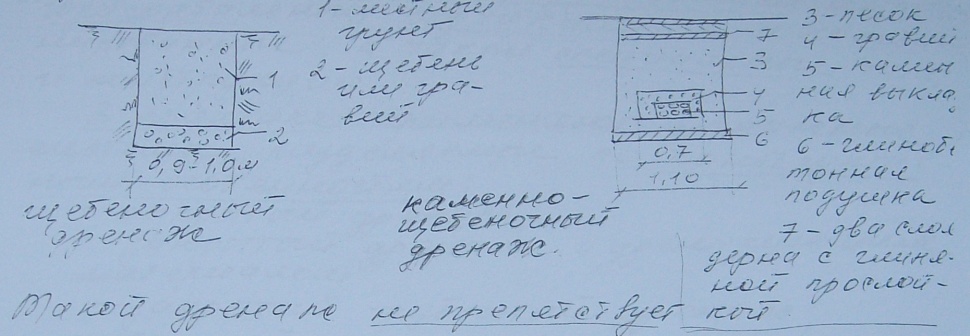 1 - местный
грунт
2 - щебень
или гра-
вий
1
2
0,9-1,0м
щебеночный
дренаж
7
3
4
5
6
0,7
1,10
каменно-
щебеночный
дренаж.
3 - песок
4 - гравий
5 - камен
ная выклад
ка
6 - глинобе
тонная
подушка
7 - два слоя
дерна с глиня-
ной прослой-
кой
Такой дренаж не препятствует